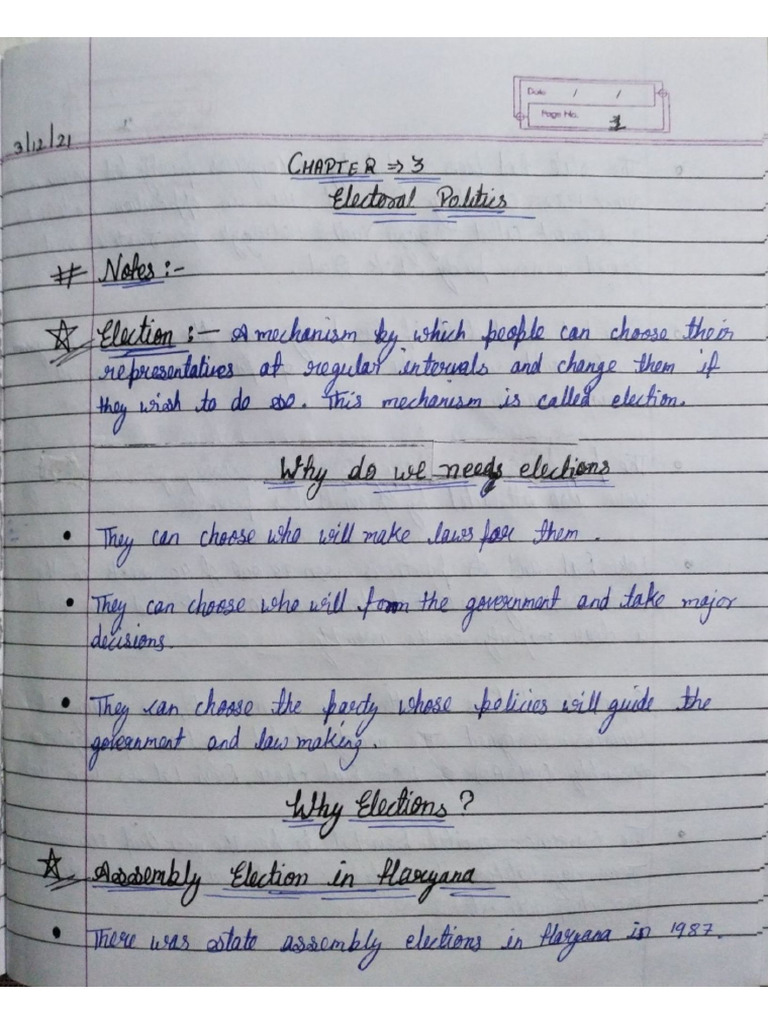 Date / /
Page No. 1
3/12/21
CHAPTER ⇒ 3
Electoral Politics
# Notes :-
☆ Election :- A mechanism by which people can choose their
representatives at regular intervals and change them if
they wish to do so. This mechanism is called election.
Why do we needs elections
• They can choose who will make laws for them.
• They can choose who will form the government and take major
decisions.
• They can choose the party whose policies will guide the
government and law making.
Why Elections?
☆ Assembly Election in Haryana
• There was state assembly elections in Haryana in 1987.